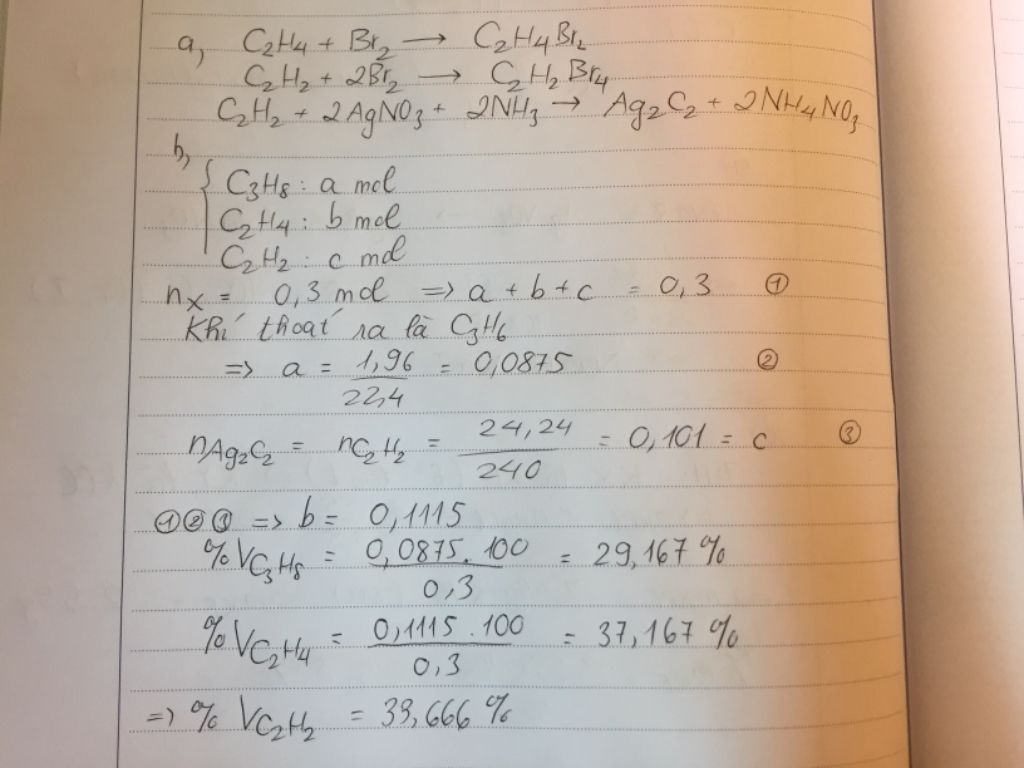 a, C2H4 + Br2 → C2H4Br2
C2H2 + 2Br2 → C2H2Br4
C2H2 + 2AgNO3 + 2NH3 → Ag2C2 + 2NH4NO3
b, { C3H8 : a mol
C2H4 : b mol
C2H2 : c mol
nX = 0,3 mol => a + b + c = 0,3 ①
Khí thoát ra là C3H6
=> a = 1,96 / 22,4 = 0,0875 ②
nAg2C2 = nC2H2 = 24,24 / 240 = 0,101 = c ③
①②③ => b = 0,1115
%VC3H8 = 0,0875.100 / 0,3 = 29,167 %
%VC2H4 = 0,1115.100 / 0,3 = 37,167 %
=> %VC2H2 = 33,666 %